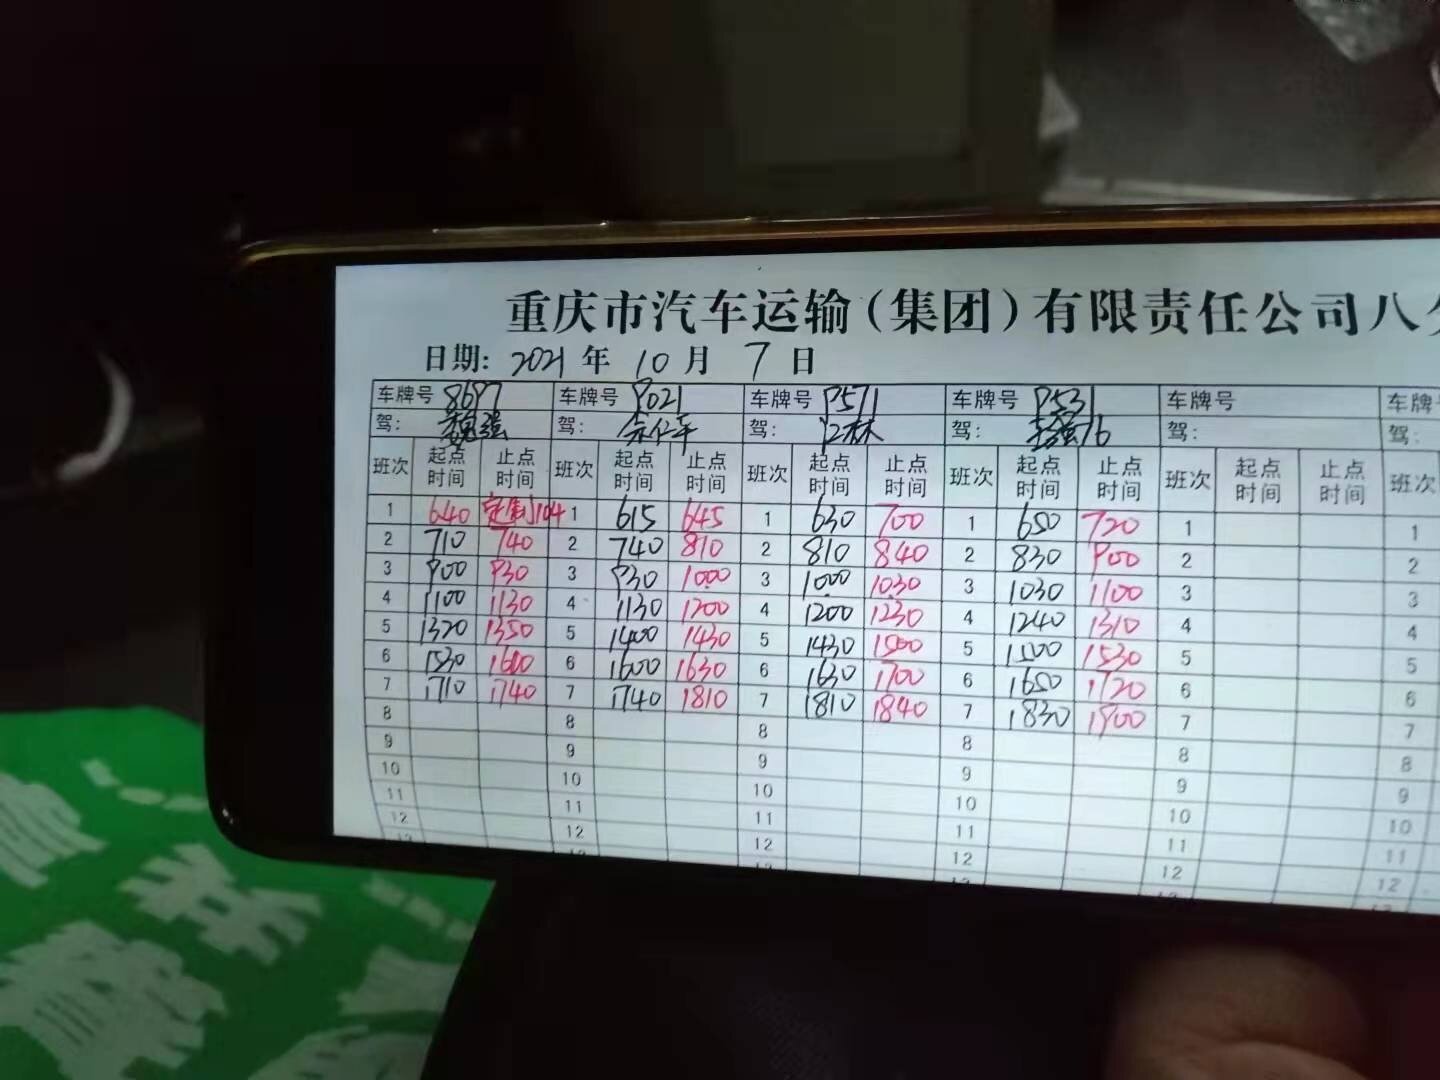 重庆市汽车运输（集团）有限责任公司八
日期: 2021 年 10 月 7 日
车牌号 8697 车牌号 9021 车牌号 P571 车牌号 P531 车牌号 车牌
驾: 魏强 驾: 余仁平 驾: 江林 驾: 驾: 驾:
班次 起点时间 止点时间 班次 起点时间 止点时间 班次 起点时间 止点时间 班次 起点时间 止点时间 班次 起点时间 止点时间 班次
1 640 定制104 1 615 645 1 630 700 1 650 720 1 1
2 710 740 2 740 810 2 810 840 2 830 900 2 2
3 900 930 3 930 1000 3 1000 1030 3 1030 1100 3 3
4 1100 1130 4 1130 1200 4 1200 1230 4 1240 1310 4 4
5 1320 1350 5 1400 1430 5 1430 1500 5 1500 1530 5 5
6 1530 1600 6 1600 1630 6 1630 1700 6 1650 1720 6 6
7 1710 1740 7 1740 1810 7 1810 1840 7 1830 1900 7 7
8 8 8 8 8 8
9 9 9 9 9 9
10 10 10 10 10 10
11 11 11 11 11 11
12 12 12 12 12 12